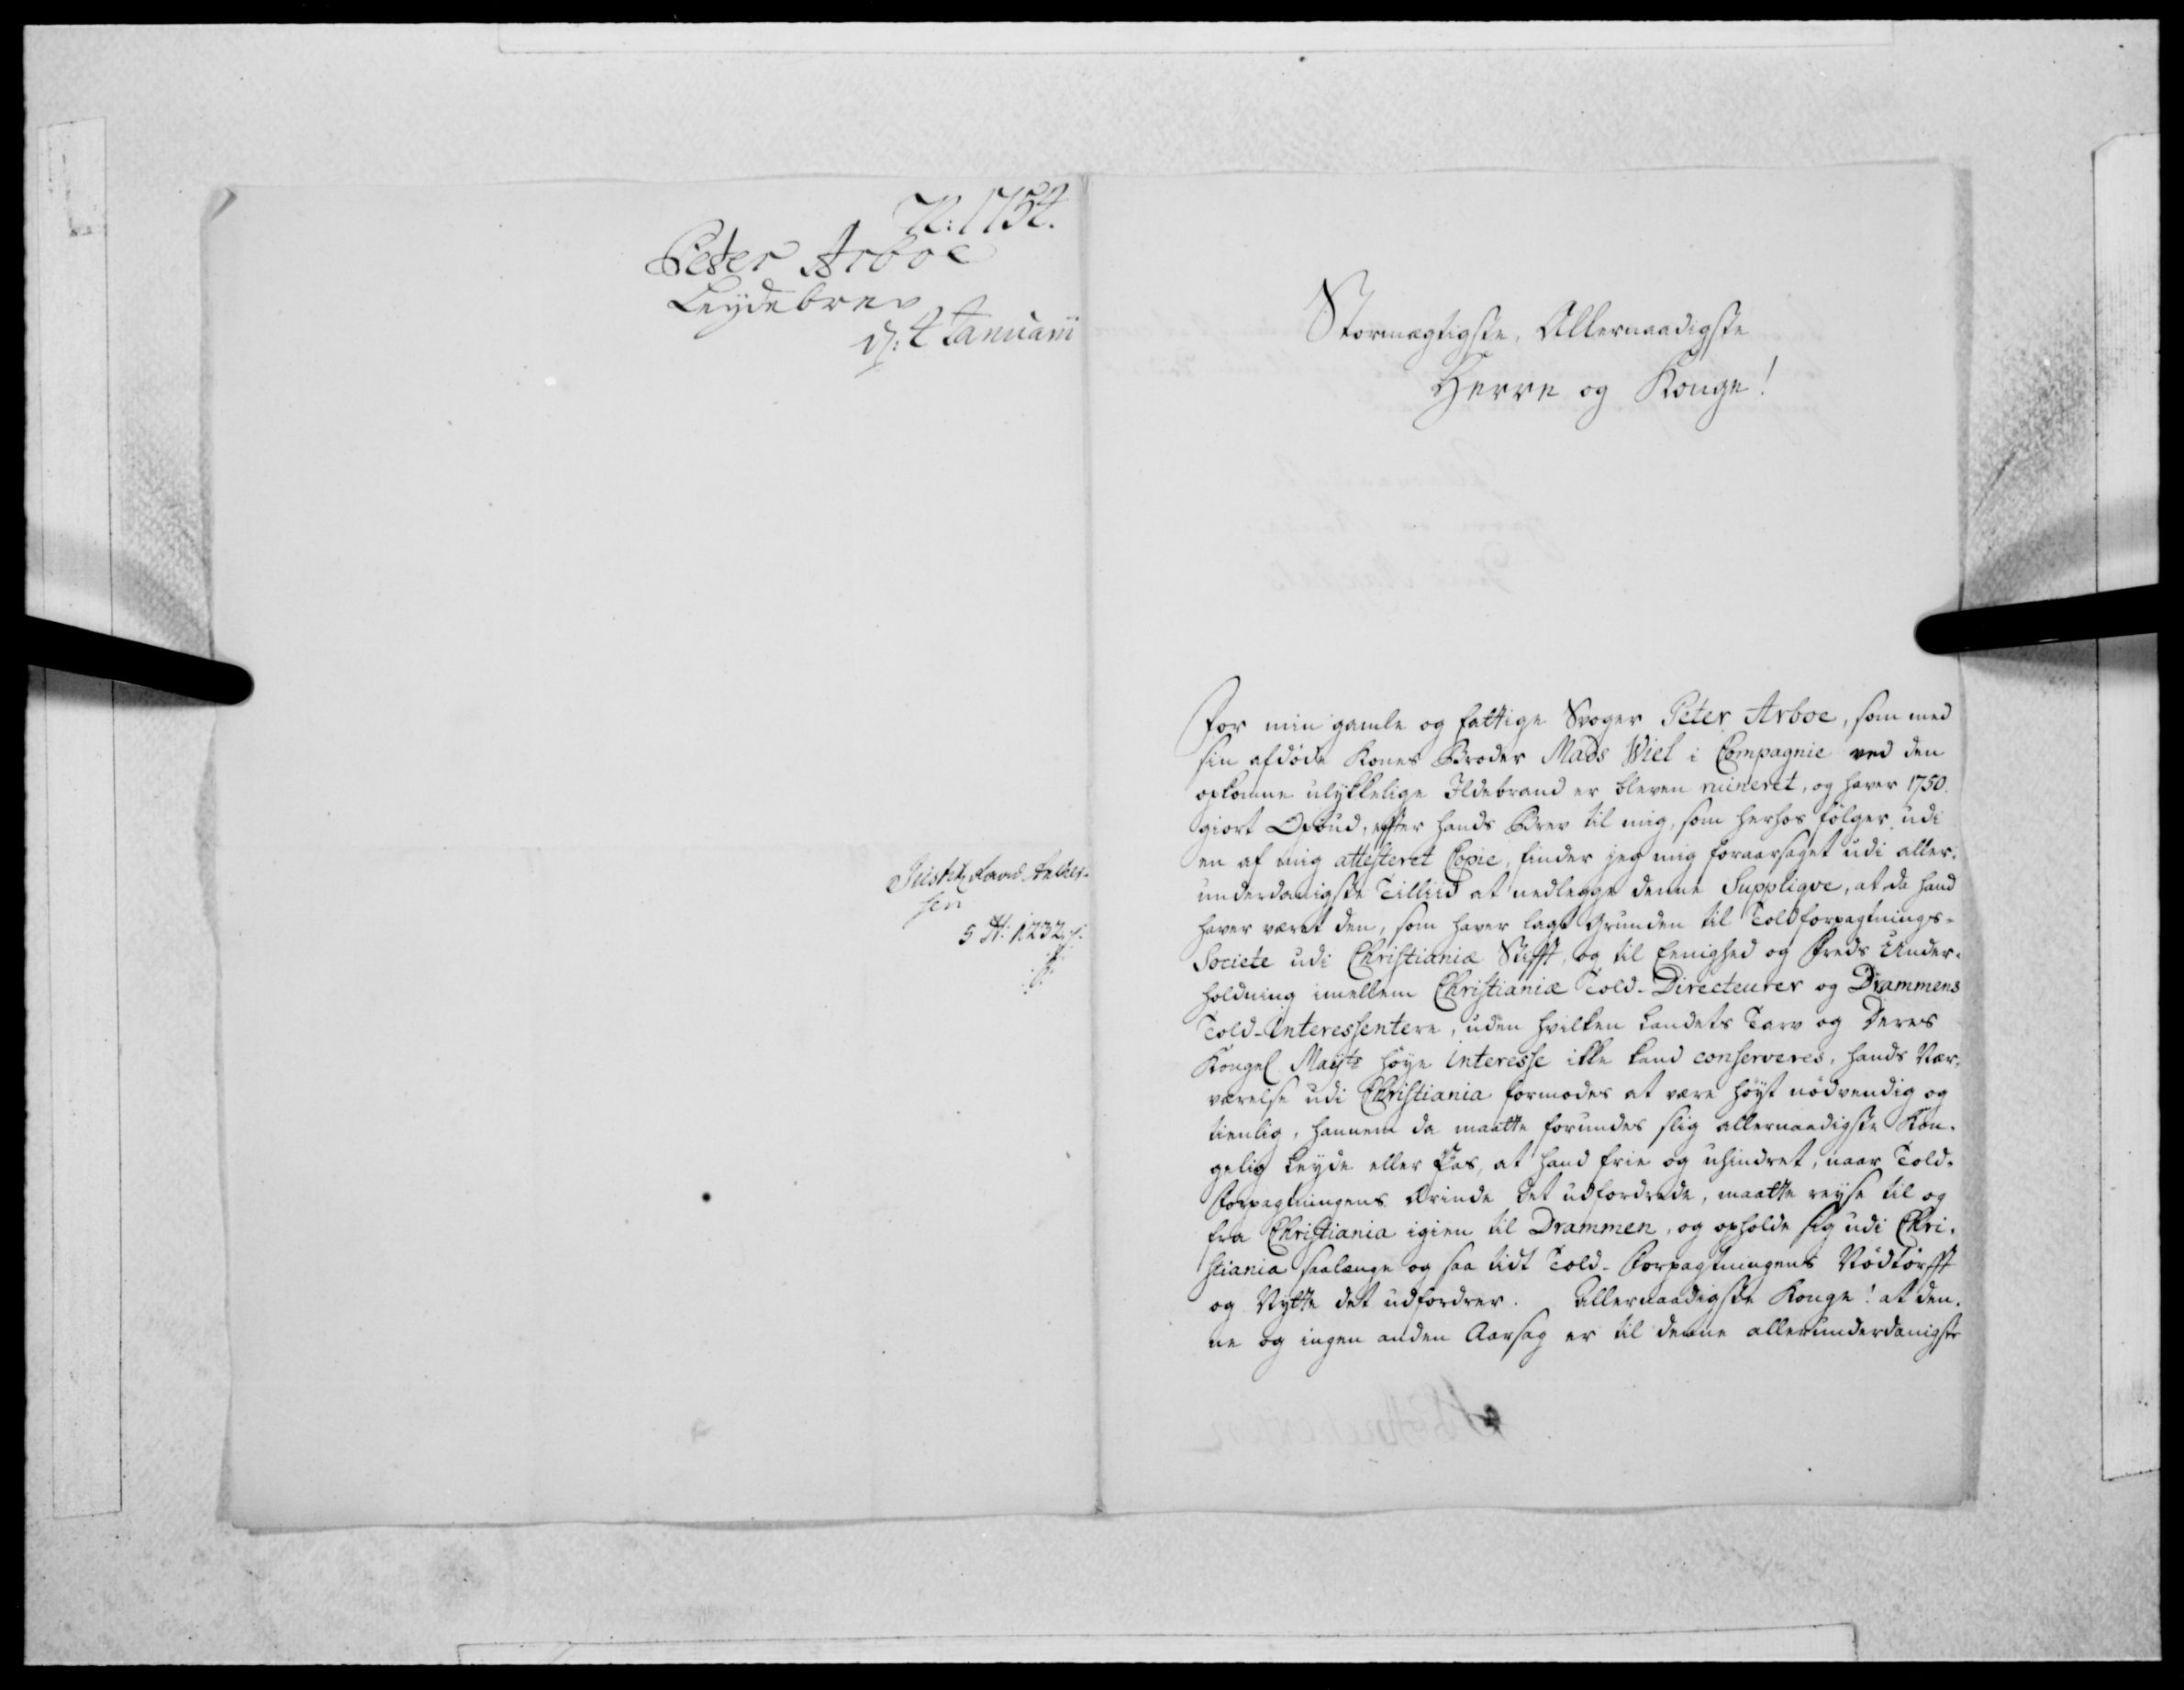 N: 1754.
Peter Arboe
Leydebrev
d: 4 Januarii
Justitz Raad Ancher-
sen
5 N: 1232
Stormægtigste, Allernaadigste
Herre og Konge!
For min gamle og fattige Svoger Peter Arboe, som med
sin afdøde Kones Broder Mads Wiel i Compagnie ved den
opkomne ulykkelige Ildebrand er bleven ruineret, og haver 1750.
giort Opbud, effter hands Brev til mig, som herhos følger udi
en af mig attesteret Copie, finder jeg mig foraarsaget udi aller-
underdanigste Tilliid at nedlegge denne Supplique, at da hand
haver været den, som haver lagt Grunden til Toldforpagtnings-
Societe udi Christianiæ Stifft, og til Eenighed og Freds Under-
holdning imellem Christianiæ Told-Directeurer og Drammens
Told-Interessentere, uden hvilken Landets Tarv og Deres
Kongel Mayts høye Interesse ikke kand conserveres, hands Nær-
værelse udi Christiania formodes at være høyst nødvendig og
tienlig, hannem da maatte forundes slig allernaadigste Kon-
gelig Leyde eller Pas, at hand frie og uhindret, naar Told-
Forpagtningens Ærinde det udfordrede, maatte reyse til og
fra Christiania igien til Drammen, og opholde sig udi Chri-
stiania saalænge og saa tidt Told-Forpagtningens Nødtørfft
og Nytte det udfordrer. Allernaadigste Konge! at den-
ne og ingen anden Aarsag er til denne allerunderdanigste